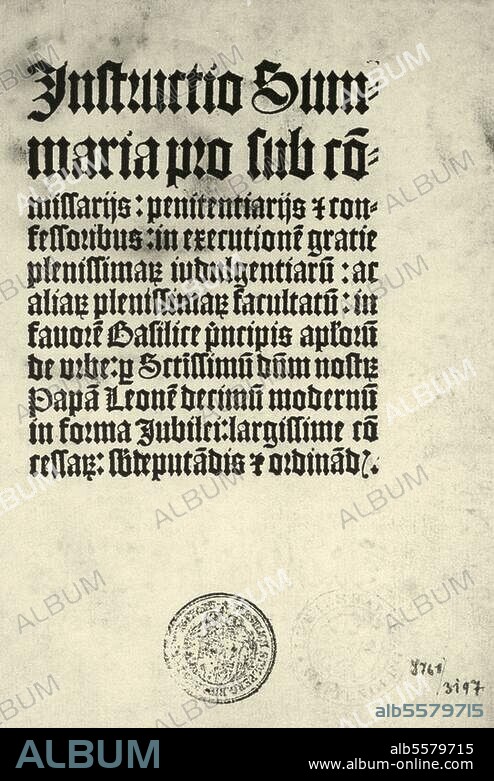 Instructio Sum-
maria pro sub cō-
missarijs: penitentiarijs ⁊ con-
fessoribus: in executionē gratie
plenissimaꝝ indulgentiarū: ac
aliaꝝ plenissimaꝝ facultatū: in
fauorē Basilice pͥncipis apl'oꝝū
de vrbe: ꝑ Sctissimū dn̄m nostꝝ
Papā Leonē decimū modernū
in forma Jubilei: largissime cō
cessaꝝ: sb̄deputādis ⁊ ordinād
3197
alb5579715
ALBUM
alb5579715
www.album-online.com